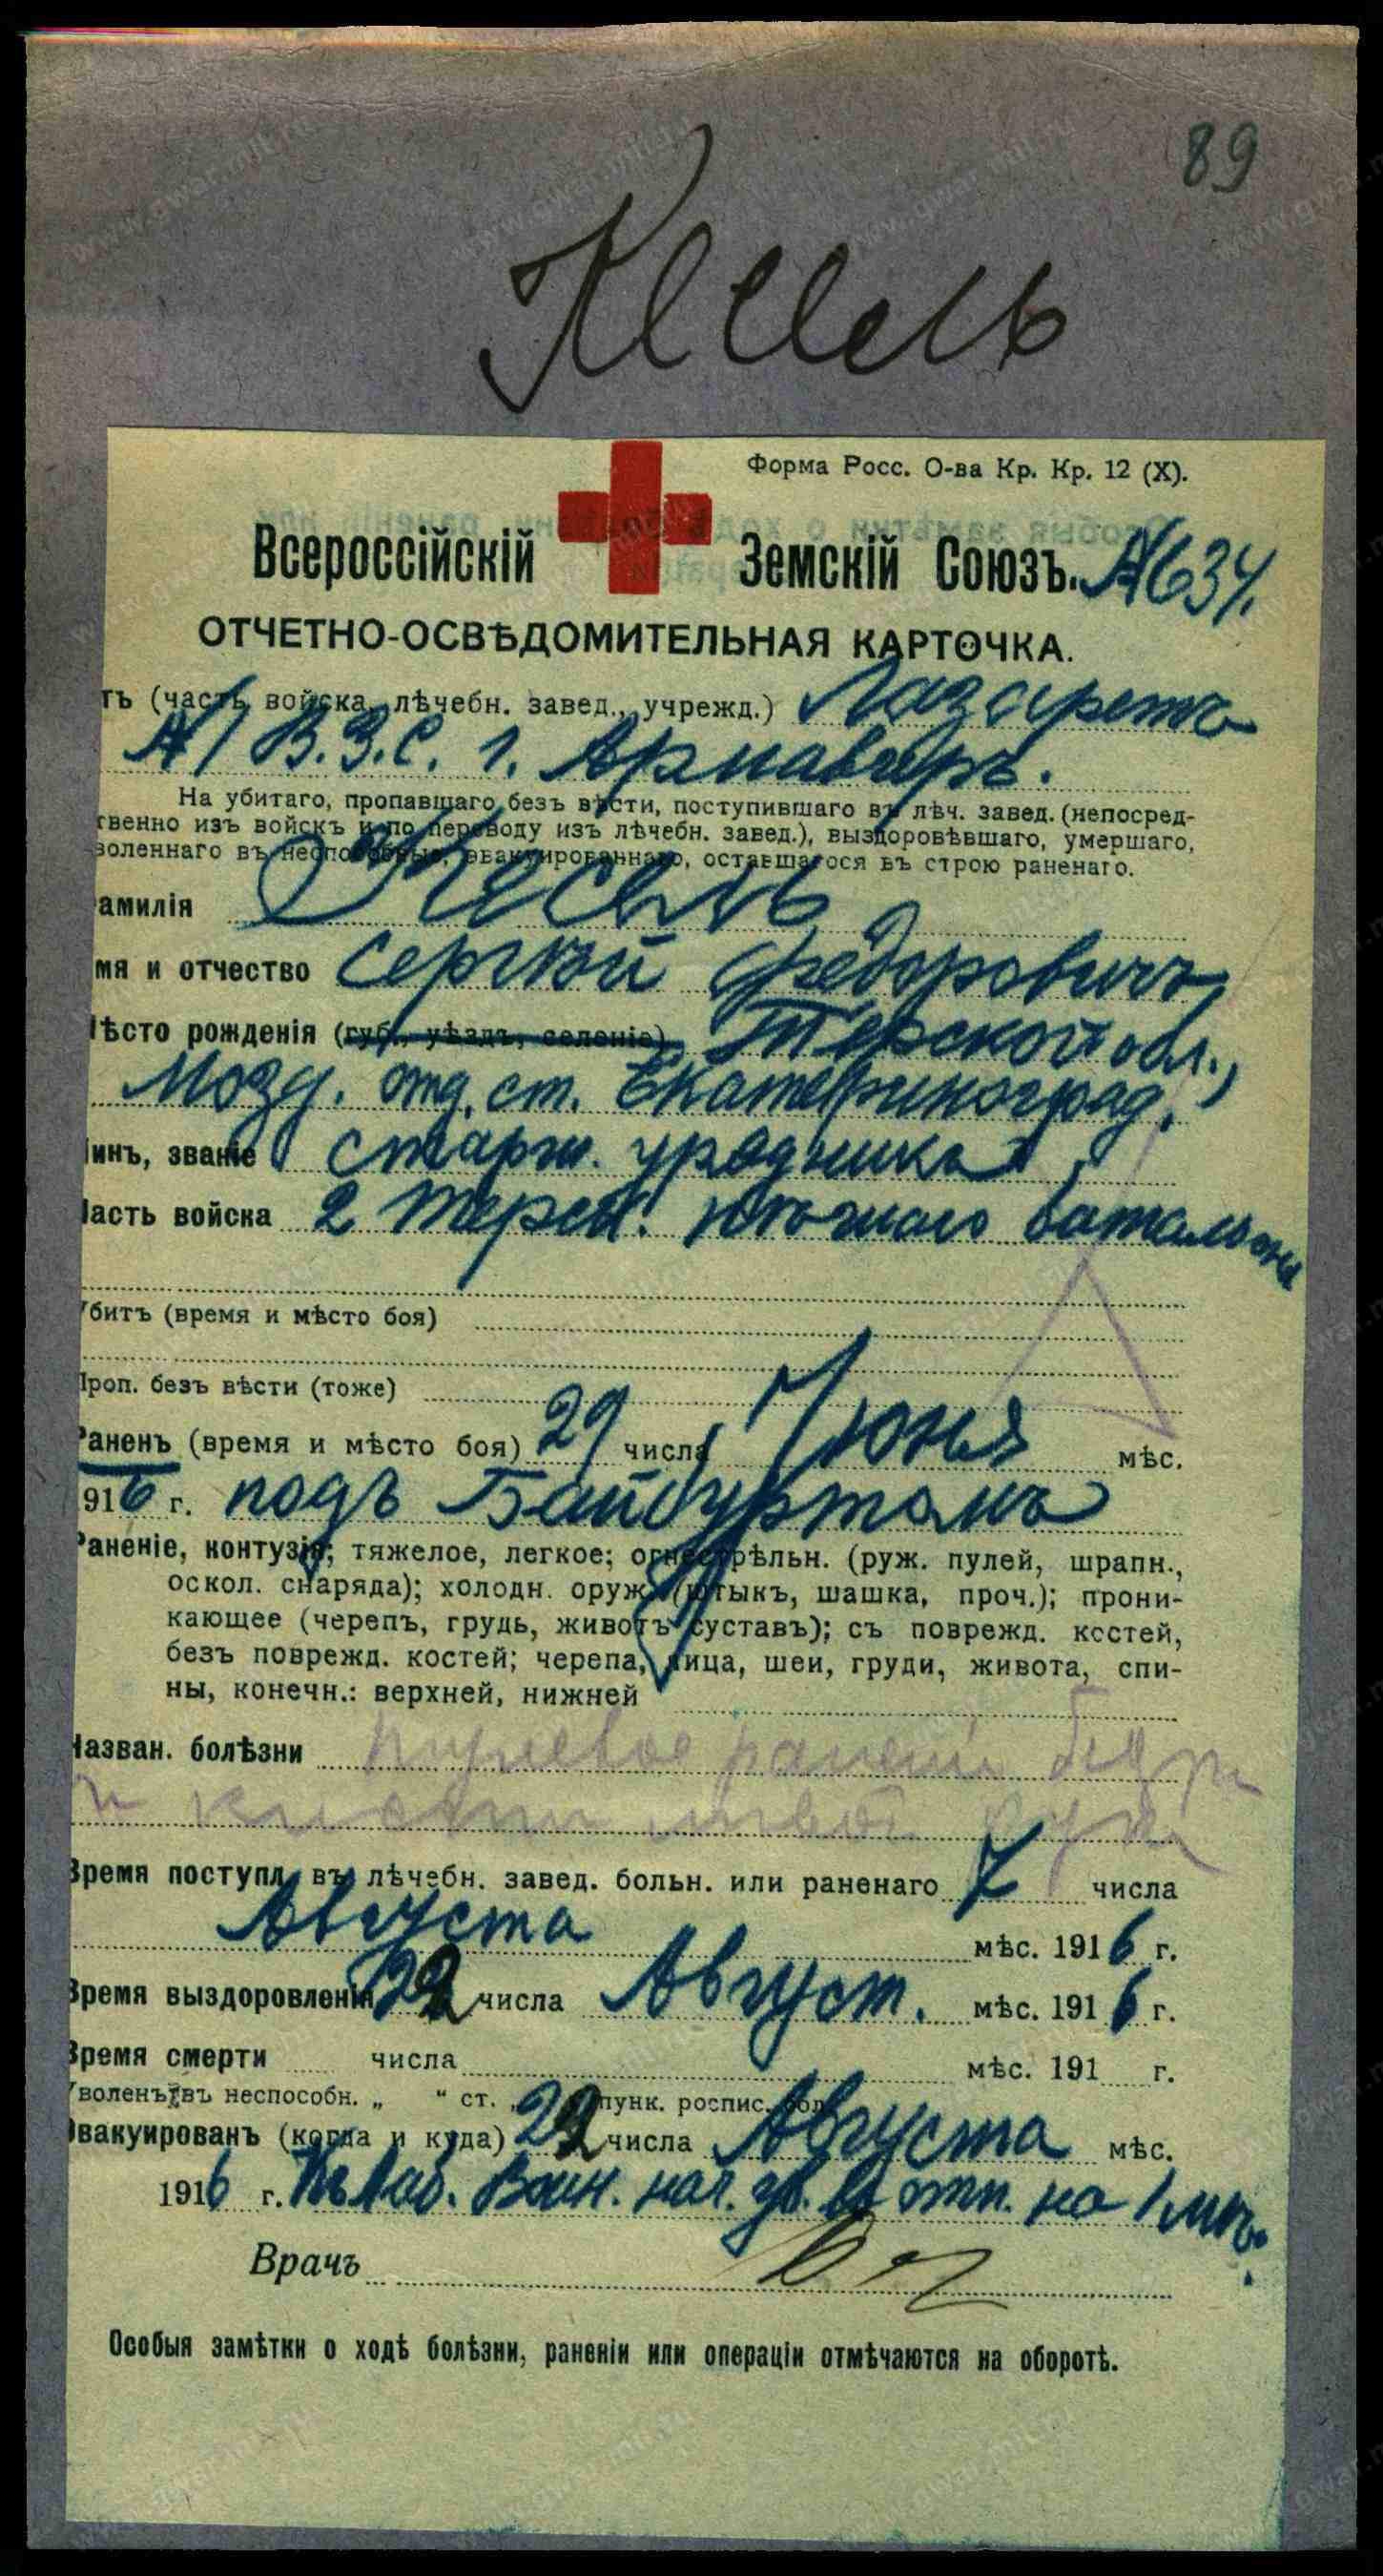 89
Кисель
Форма Росс. О-ва Кр. Кр. 12 (X).
Всероссійскій Земскій Союзъ. № 634.
ОТЧЕТНО-ОСВѢДОМИТЕЛЬНАЯ КАРТОЧКА.
тъ (часть войска, лѣчебн. завед., учрежд.) Лазаретъ
№1 В.З.С. г. Армавиръ.
На убитаго, пропавшаго безъ вѣсти, поступившаго въ лѣч. завед. (непосред-
твенно изъ войскъ и по переводу изъ лѣчебн. завед.), выздоровѣвшаго, умершаго,
воленнаго въ неспособные, эвакуированнаго, оставшагося въ строю раненаго.
амилія Кисель
мя и отчество Сергѣй Федоровичъ
Мѣсто рожденія (губ., уѣздъ, селеніе) Терской обл.,
Мозд. отд. ст. Екатериноград.
Чинъ, званіе старш. урядникъ
Часть войска 2 Терск. пѣшаго батальона
Убитъ (время и мѣсто боя)
Проп. безъ вѣсти (тоже)
Раненъ (время и мѣсто боя) 29 числа Июня мѣс.
916 г. подъ Байбуртомъ
Раненіе, контузія; тяжелое, легкое; огнестрѣльн. (руж. пулей, шрапн.,
оскол. снаряда); холодн. оруж. (штыкъ, шашка, проч.); прони-
кающее (черепъ, грудь, животъ суставъ); съ поврежд. костей,
безъ поврежд. костей; черепа, лица, шеи, груди, живота, спи-
ны, конечн.: верхней, нижней
Назван. болѣзни пулевое раненіе бедра
и кисти лѣвой руки
Время поступл. въ лѣчебн. завед. больн. или раненаго 7 числа
Августа мѣс. 1916 г.
Время выздоровленія 22 числа Август. мѣс. 1916 г.
Время смерти числа мѣс. 191 г.
Уволенъ въ неспособн. „ “ ст. „ пунк. роспис. бол.
Эвакуированъ (когда и куда) 22 числа Августа мѣс.
1916 г. Къ Лаб. Воин. нач. ув. въ отп. на 1 мѣс.
Врачъ
Особыя замѣтки о ходѣ болѣзни, раненіи или операціи отмѣчаются на оборотѣ.